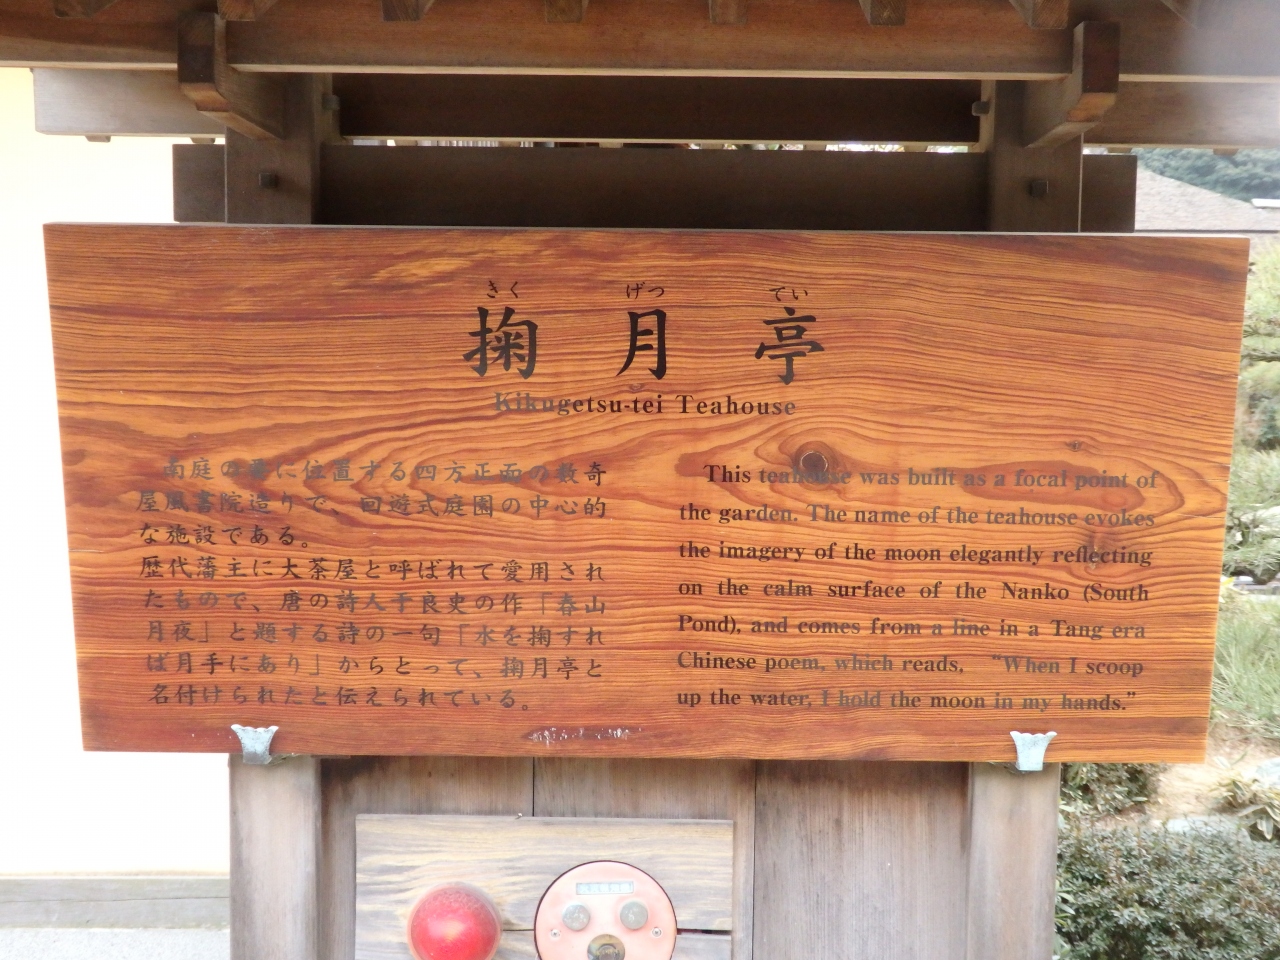 きく げつ てい
掬月亭
Kikugetsu-tei Teahouse
南庭の要に位置する四方正面の数奇
屋風書院造りで、回遊式庭園の中心的
な施設である。
歴代藩主に大茶屋と呼ばれて愛用され
たもので、唐の詩人于良史の作「春山
月夜」と題する詩の一句「水を掬すれ
ば月手にあり」からとって、掬月亭と
名付けられたと伝えられている。
This teahouse was built as a focal point of
the garden. The name of the teahouse evokes
the imagery of the moon elegantly reflecting
on the calm surface of the Nanko (South
Pond), and comes from a line in a Tang era
Chinese poem, which reads, "When I scoop
up the water, I hold the moon in my hands."